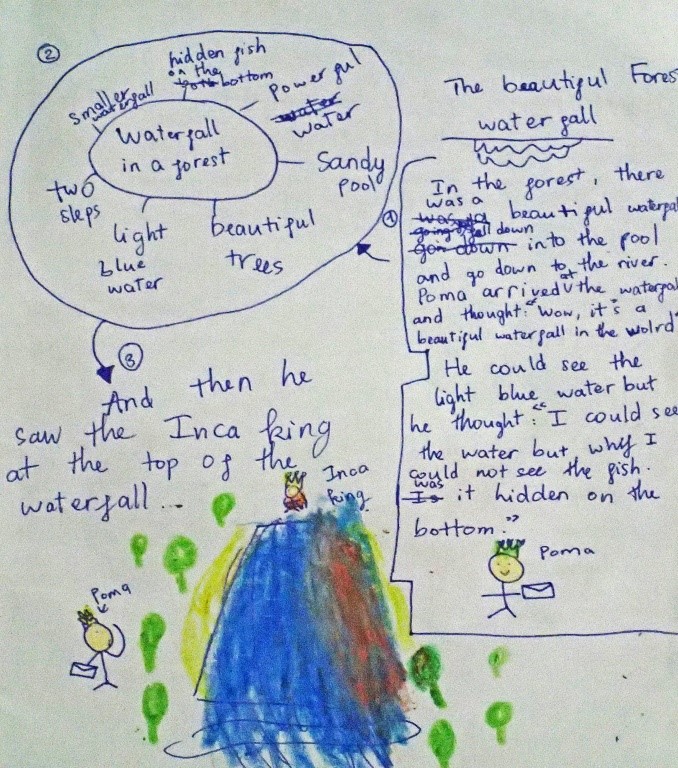 ②
hidden fish
on the
bottom
powerful
water
water
smaller
waterfall
Waterfall
in a forest
Sandy
pool
two
steps
light
blue
water
beautiful
trees
The beautiful Fores
waterfall
①
In the forest, there
was a
beautiful waterfal
fell down
go down into the pool
and go down to the river.
Poma arrived at the waterfal
and thought: "Wow, it's a
beautiful waterfall in the wolrd"
He could see the
light blue water but
he thought: "I could see
the water but why I
could not see the fish.
was
Is it hidden on the
bottom."
Poma
③
And then he
saw the Inca king
at the top of the
waterfall...
Inca
king
Poma